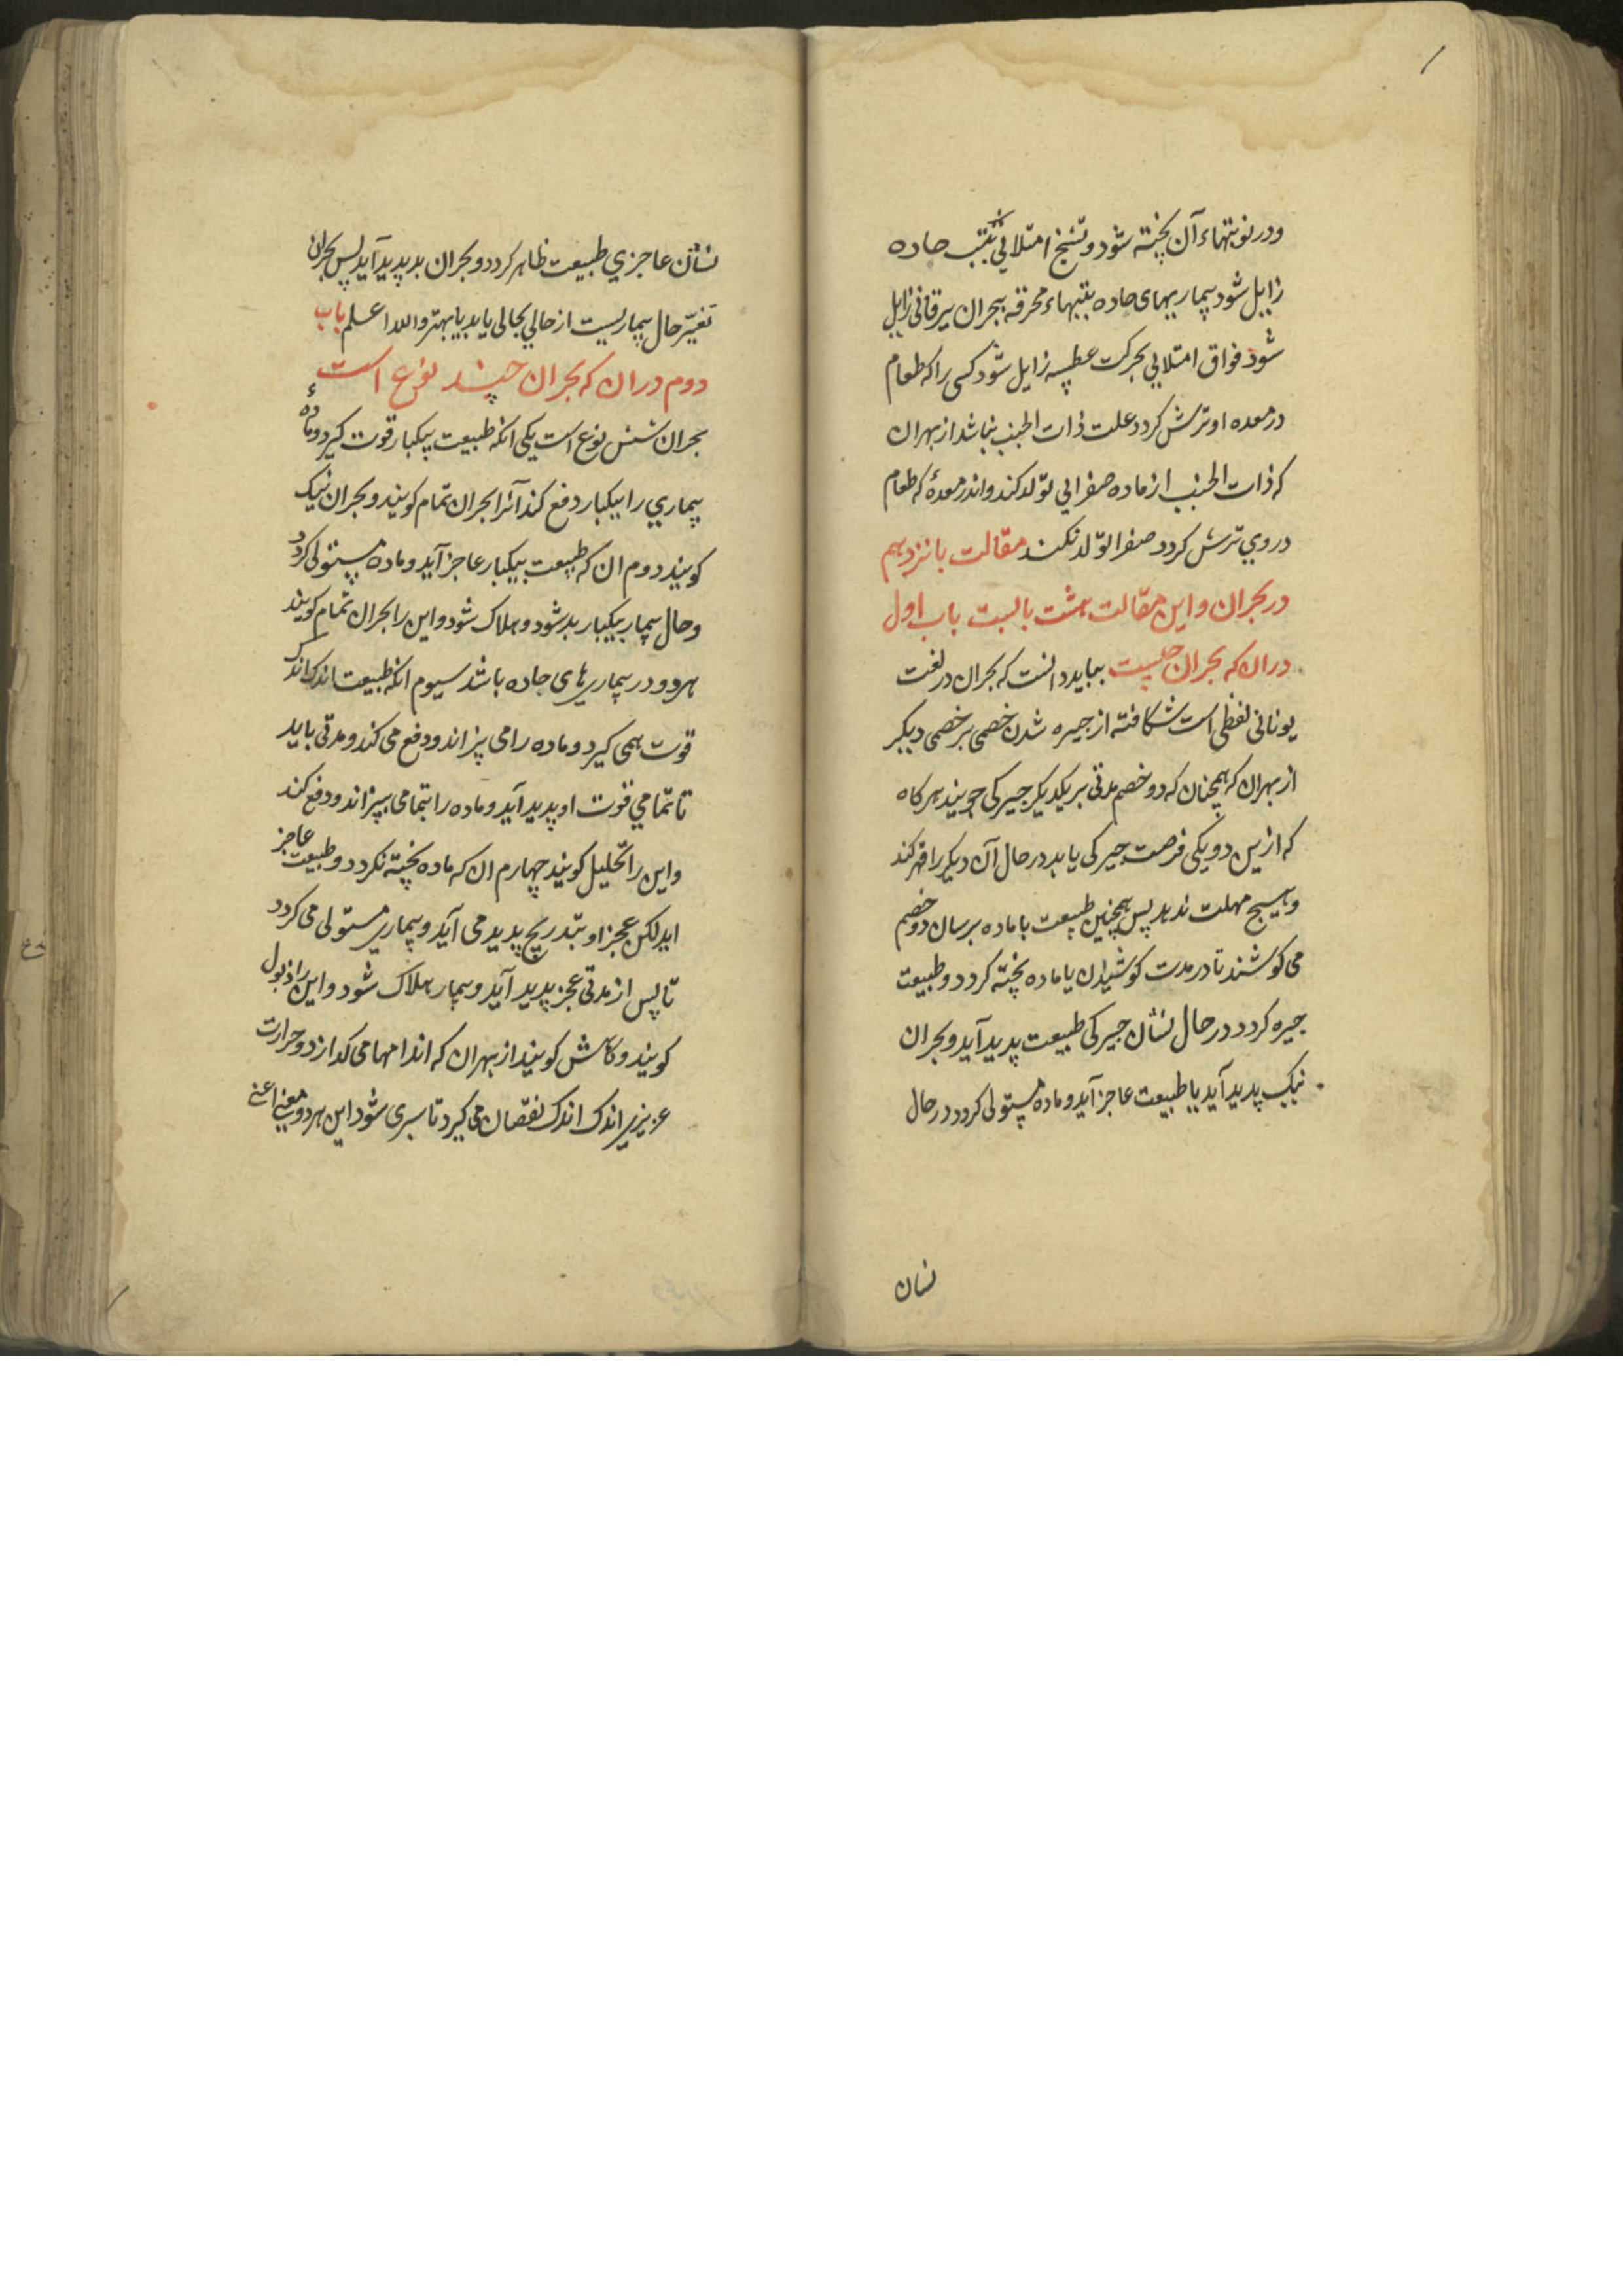 ودر نوبتهاء آن پخته شود و تشنج امتلائی بتب حاده
زایل شود بیماریهای حاده بتبهاء محرقه ببحران یرقانی زایل
شود فواق امتلایی بحرکت عطسه زایل شود کسی را که طعام
در معده او ترش کردد علت ذات الجنب نباشد از بهر ان
که ذات الجنب از ماده صفرایی تولد کند و اندر معدهٔ که طعام
در وی ترش کردد صفرا تولد نکند مقالت بانزدهم
در بحران و این مقالت هشت بابست باب اول
در ان که بحران چیست بباید دانست که بحران در لغت
یونانی لفظی است شکافته از چیره شدن خصمی بر خصمی دیکر
از بهر ان که همچنان که دو خصم مدتی بر یکدیکر چیرکی جویند هرکاه
که ازین دو یکی فرصت چیرکی یابد در حال آن دیکر را قهر کند
و هیچ مهلت ندهد پس همچنین طبیعت با ماده برسان دو خصم
می کوشند تا در مدت کوشیدن یا ماده پخته کردد و طبیعت
چیره کردد در حال نشان چیرکی طبیعت پدید آید و بحران
نیک پدید آید یا طبیعت عاجز آید و ماده مستولی کردد در حال
نسان
نشان عاجزي طبیعت ظاهر کردد و بحران بد پدید آید پس بحران
تغیّر حال بیماریست از حالي بحالی یا بد یا بهتر والله اعلم باب
دوم در ان که بحران چند نوع است
بحران شش نوع است یکی انکه طبیعت بیکبار قوت کیرد و مادهٔ
بیماري را بیکبار دفع کند آنرا بحران تمام کویند و بحران نیک
کویند دوم ان که طبیعت بیکبار عاجز آید و ماده مستولی کردد
و حال بیمار بیکبار بد شود و هلاک شود و این را بحران تمام کویند
هر دو در بیماری های حاده باشد سیوم انکه طبیعت اندک اندک
قوت همی کیرد و ماده را می پزاند و دفع می کند و مدتی باید
تا تمامي قوت او پدید آید و ماده را بتمامی بپزاند و دفع کند
و این را تحلیل کویند چهارم ان که ماده پخته نکردد و طبیعت عاجز
اید لکن عجز او بتدریج پدید می آید و بیماری مستولی می کردد
تا پس از مدتی عجز پدید آید و بیمار هلاک شود و این را ذبول
کویند و کاهش کویند از بهر ان که اندامها می کدازد و حرارت
عزیزی اندک اندک نقصان می کیرد تا سپری شود این هر دو معنی اعنی